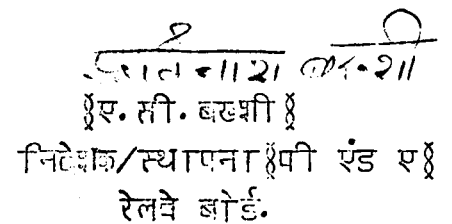 (ए. सी. बख्शी)
निदेशक/स्थापना(पी एंड ए)
रेलवे बोर्ड.